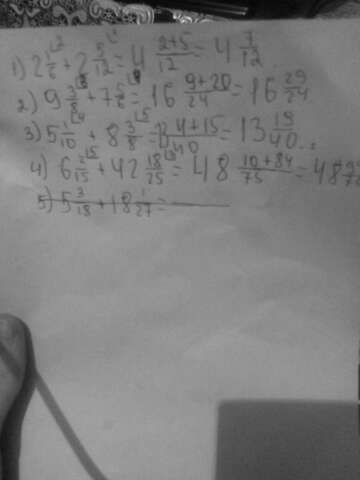 1) 2 1/6 + 2 5/12 = 4 2+5/12 = 4 7/12
2) 9 3/8 + 7 5/6 = 16 9+20/24 = 16 29/24
3) 5 1/10 + 8 3/8 = 13 4+15/40 = 13 19/40
4) 6 2/15 + 42 18/25 = 48 10+84/75 = 48
5) 5 3/18 + 18 1/27 =